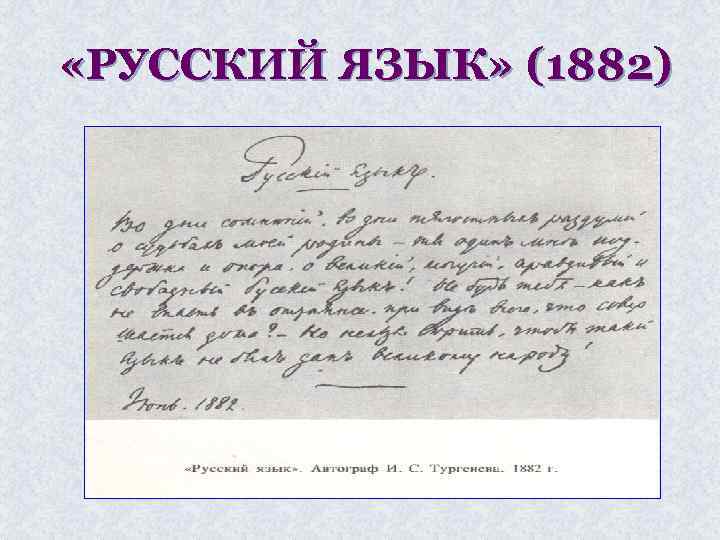 «РУССКИЙ ЯЗЫК» (1882)
Русскій языкъ.
Во дни сомнѣній, во дни тягостныхъ раздумій
о судьбахъ моей родины – ты одинъ мнѣ под-
держка и опора, о великій, могучій, правдивый и
свободный Русскій Языкъ! Не будь тебя – какъ
не впасть въ отчаянье при видѣ всего, что совер-
шается дома? – Но нельзя вѣрить, чтобы такой
языкъ не былъ данъ великому народу!
Июнь. 1882.
«Русский язык». Автограф И. С. Тургенева. 1882 г.